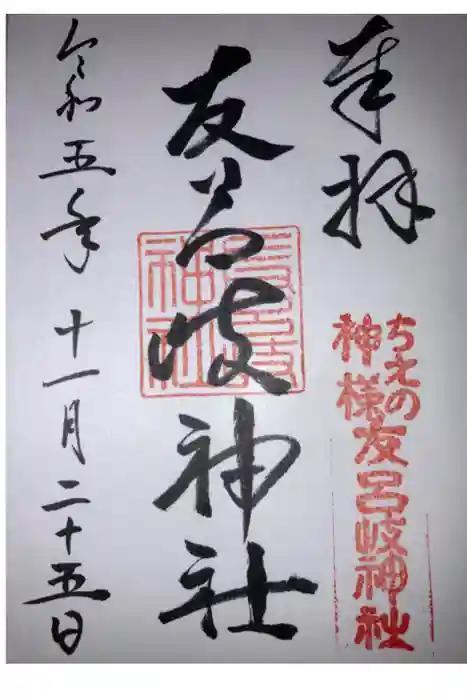 奉拝
ちえの
神様友呂岐神社
友呂岐神社
友呂岐神社
令和五年十一月二十五日